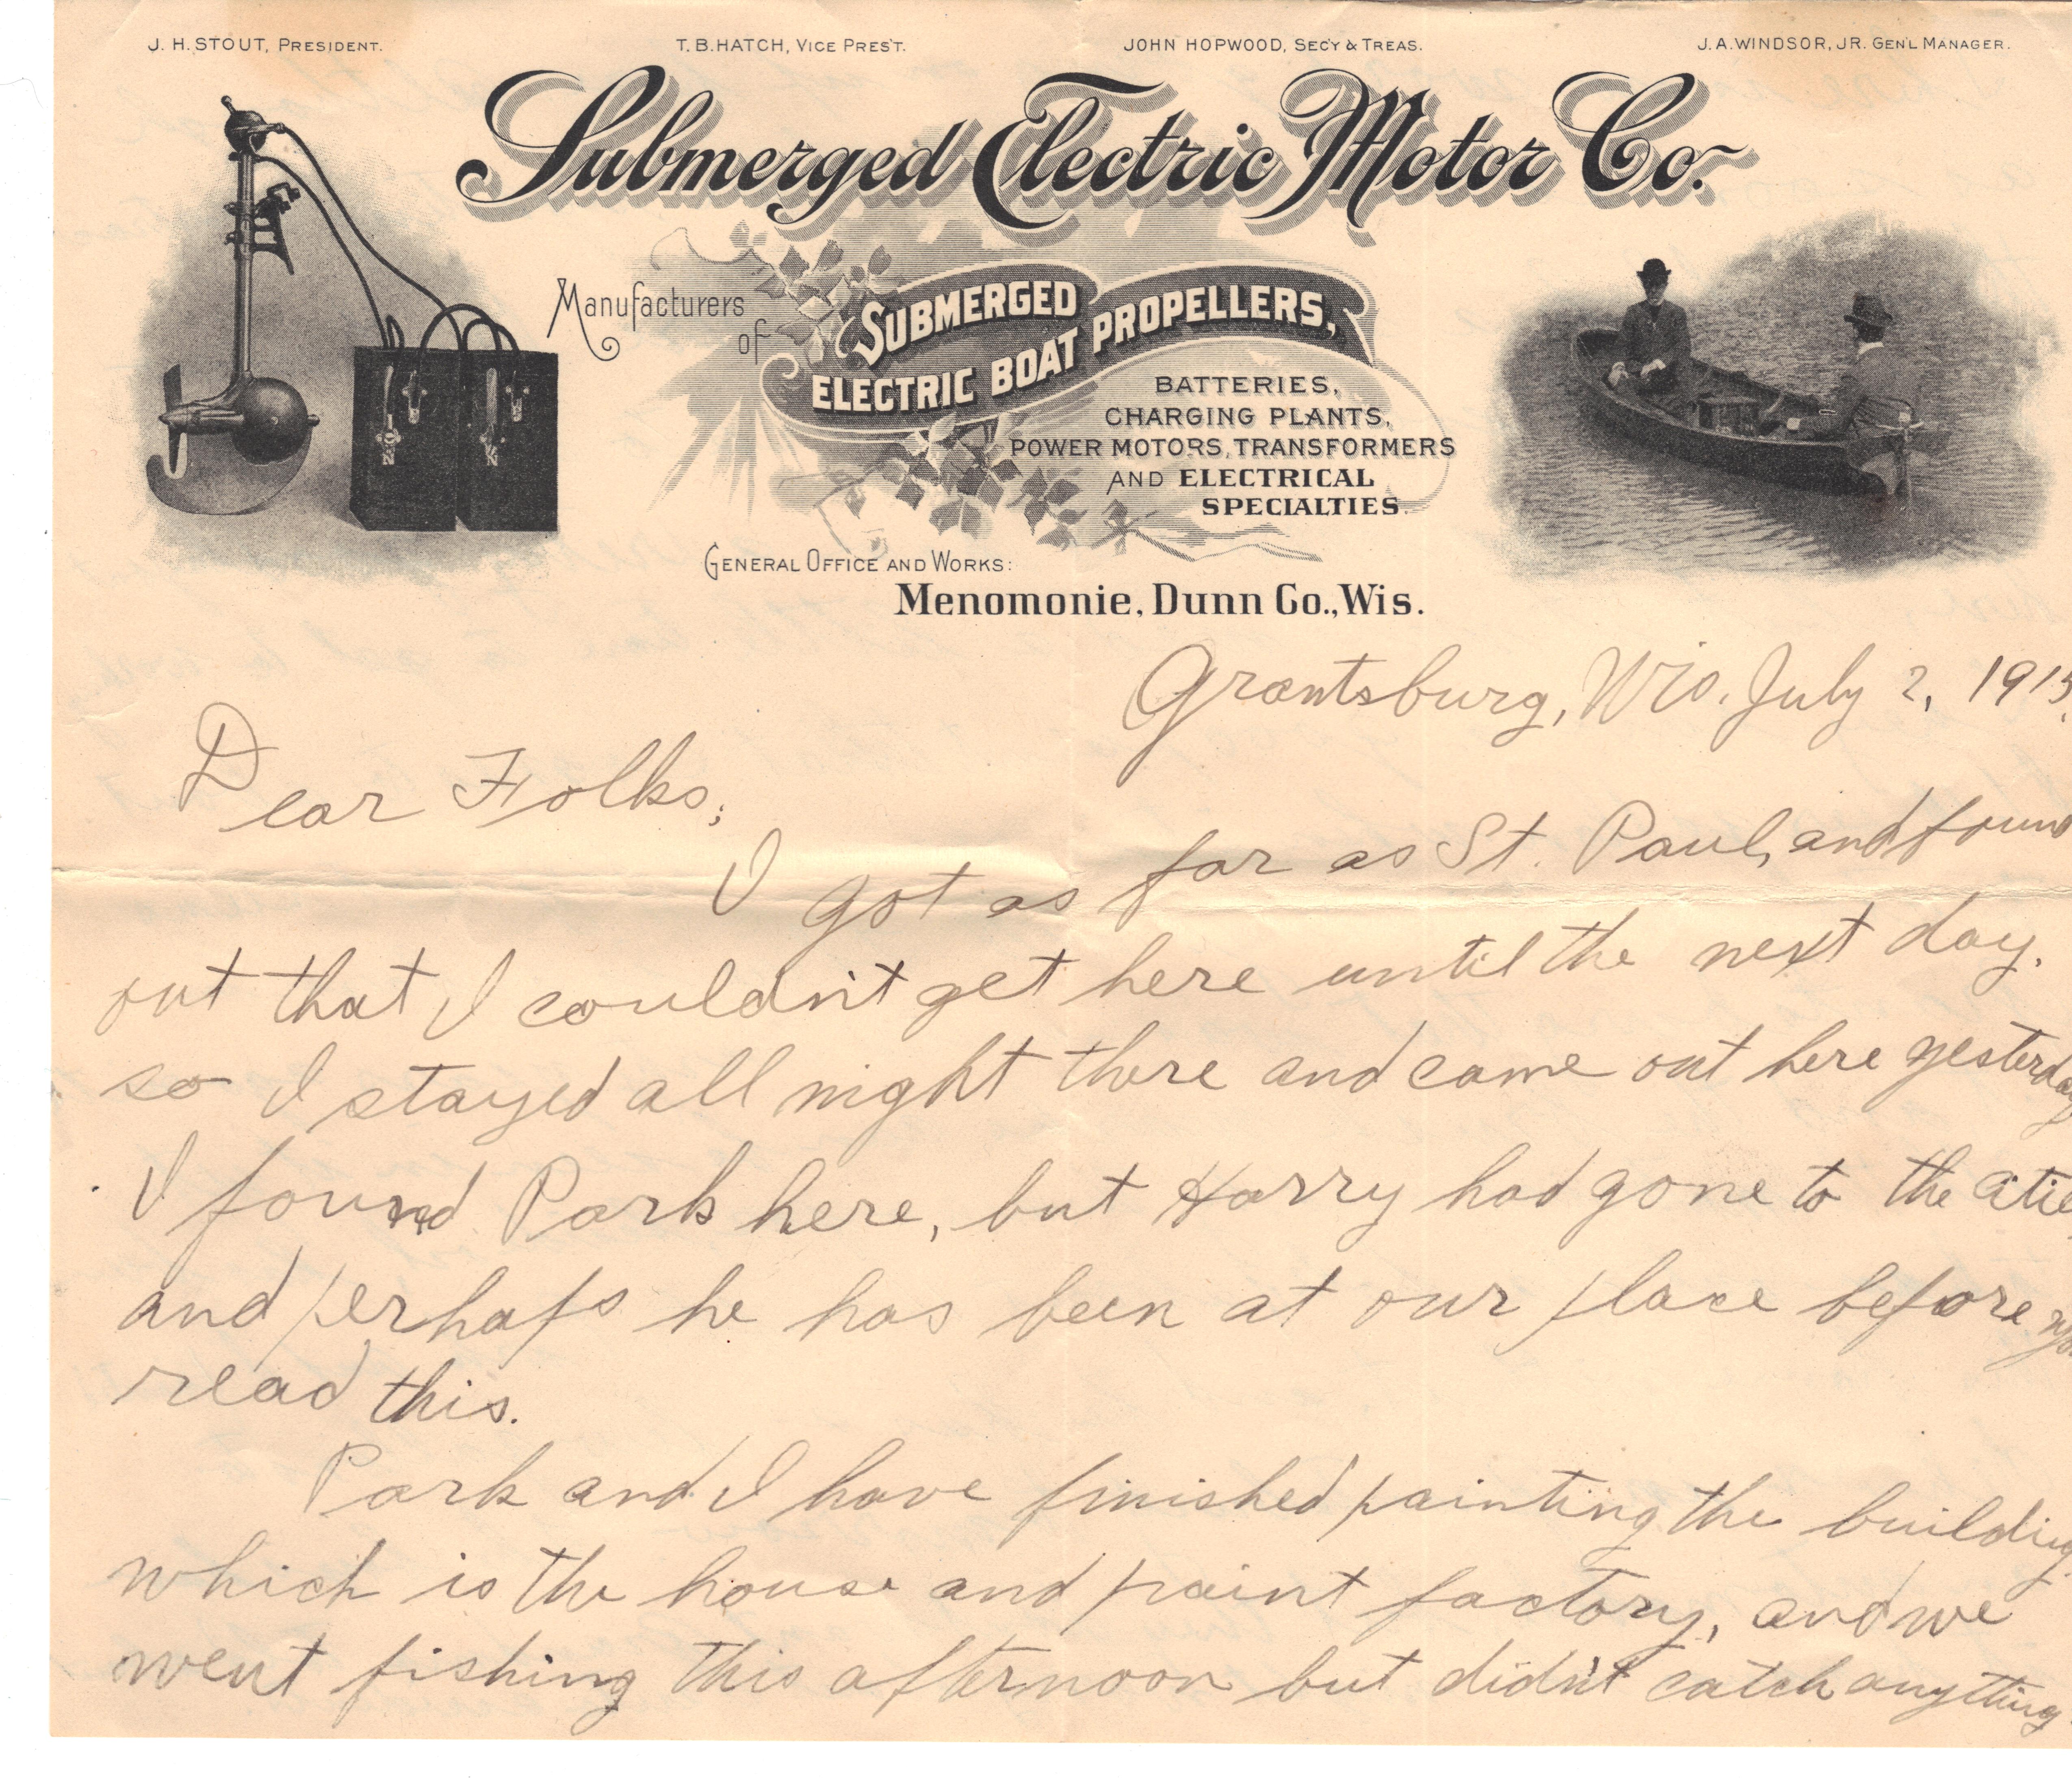 J. H. STOUT, PRESIDENT. T. B. HATCH, VICE PRES'T. JOHN HOPWOOD, SEC'Y & TREAS. J. A. WINDSOR, JR. GEN'L MANAGER.
Submerged Electric Motor Co.
Manufacturers of
SUBMERGED
ELECTRIC BOAT PROPELLERS,
BATTERIES,
CHARGING PLANTS,
POWER MOTORS, TRANSFORMERS
AND ELECTRICAL
SPECIALTIES.
GENERAL OFFICE AND WORKS:
Menomonie, Dunn Co., Wis.
Grantsburg, Wis. July 2, 1915.
Dear Folks;
I got as far as St. Paul, and foun
out that I couldn't get here until the next day.
so I stayed all night there and came out here yesterday
I found Park here, but Harry had gone to the citie
and perhaps he has been at our place before you
read this.
Park and I have finished painting the building
which is the house and paint factory, and we
went fishing this afternoon but didn't catch anything.